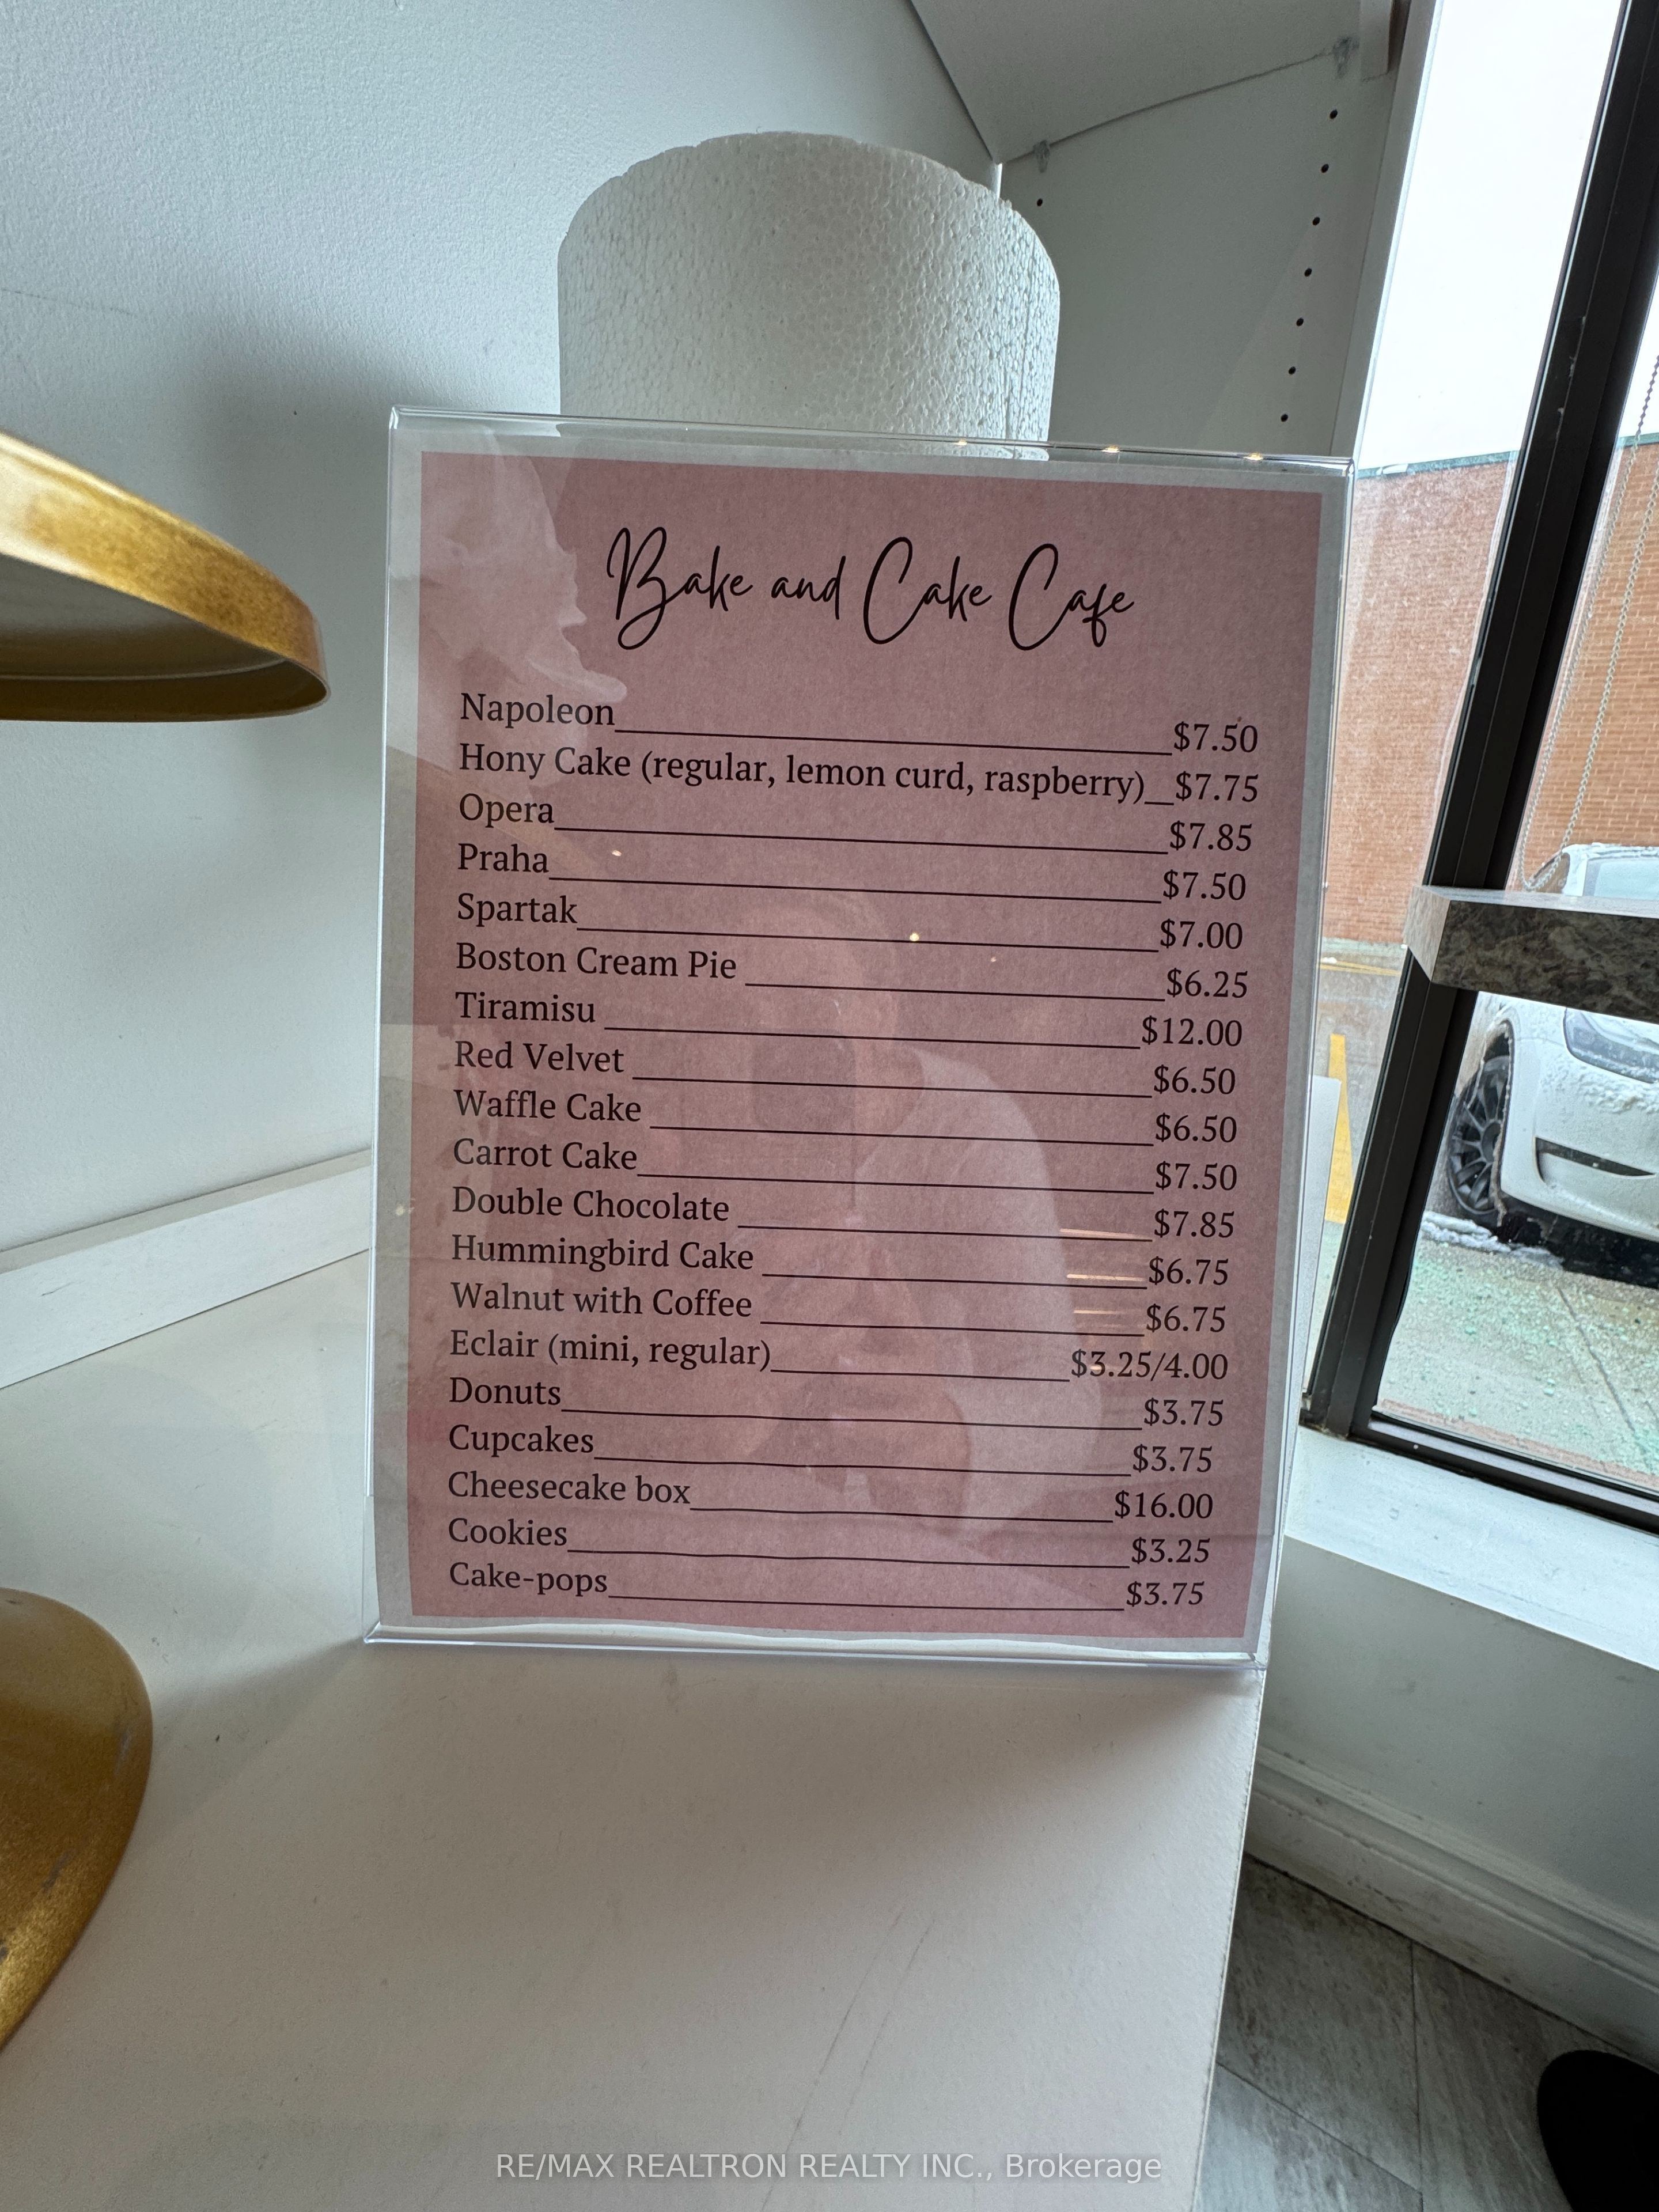 Bake and Cake Cafe
Napoleon $7.50
Hony Cake (regular, lemon curd, raspberry) $7.75
Opera $7.85
Praha $7.50
Spartak $7.00
Boston Cream Pie $6.25
Tiramisu $12.00
Red Velvet $6.50
Waffle Cake $6.50
Carrot Cake $7.50
Double Chocolate $7.85
Hummingbird Cake $6.75
Walnut with Coffee $6.75
Eclair (mini, regular) $3.25/4.00
Donuts $3.75
Cupcakes $3.75
Cheesecake box $16.00
Cookies $3.25
Cake-pops $3.75
RE/MAX REALTRON REALTY INC., Brokerage